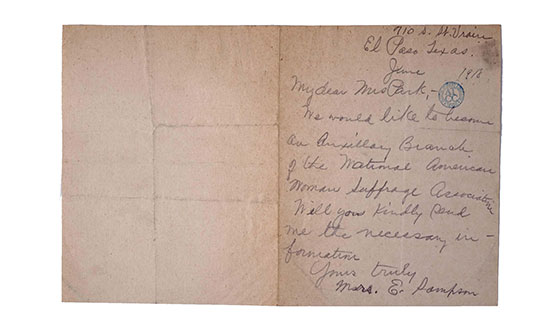 710 S. St. Vrain
El Paso Texas.
June 1918.
My dear Mrs Park,-
We would like to become
an Auxillary Branch
of the National American
Woman Suffrage Association
Will you kindly send
me the necessary in-
formation
Yours truly
Mrs. E. Sampson